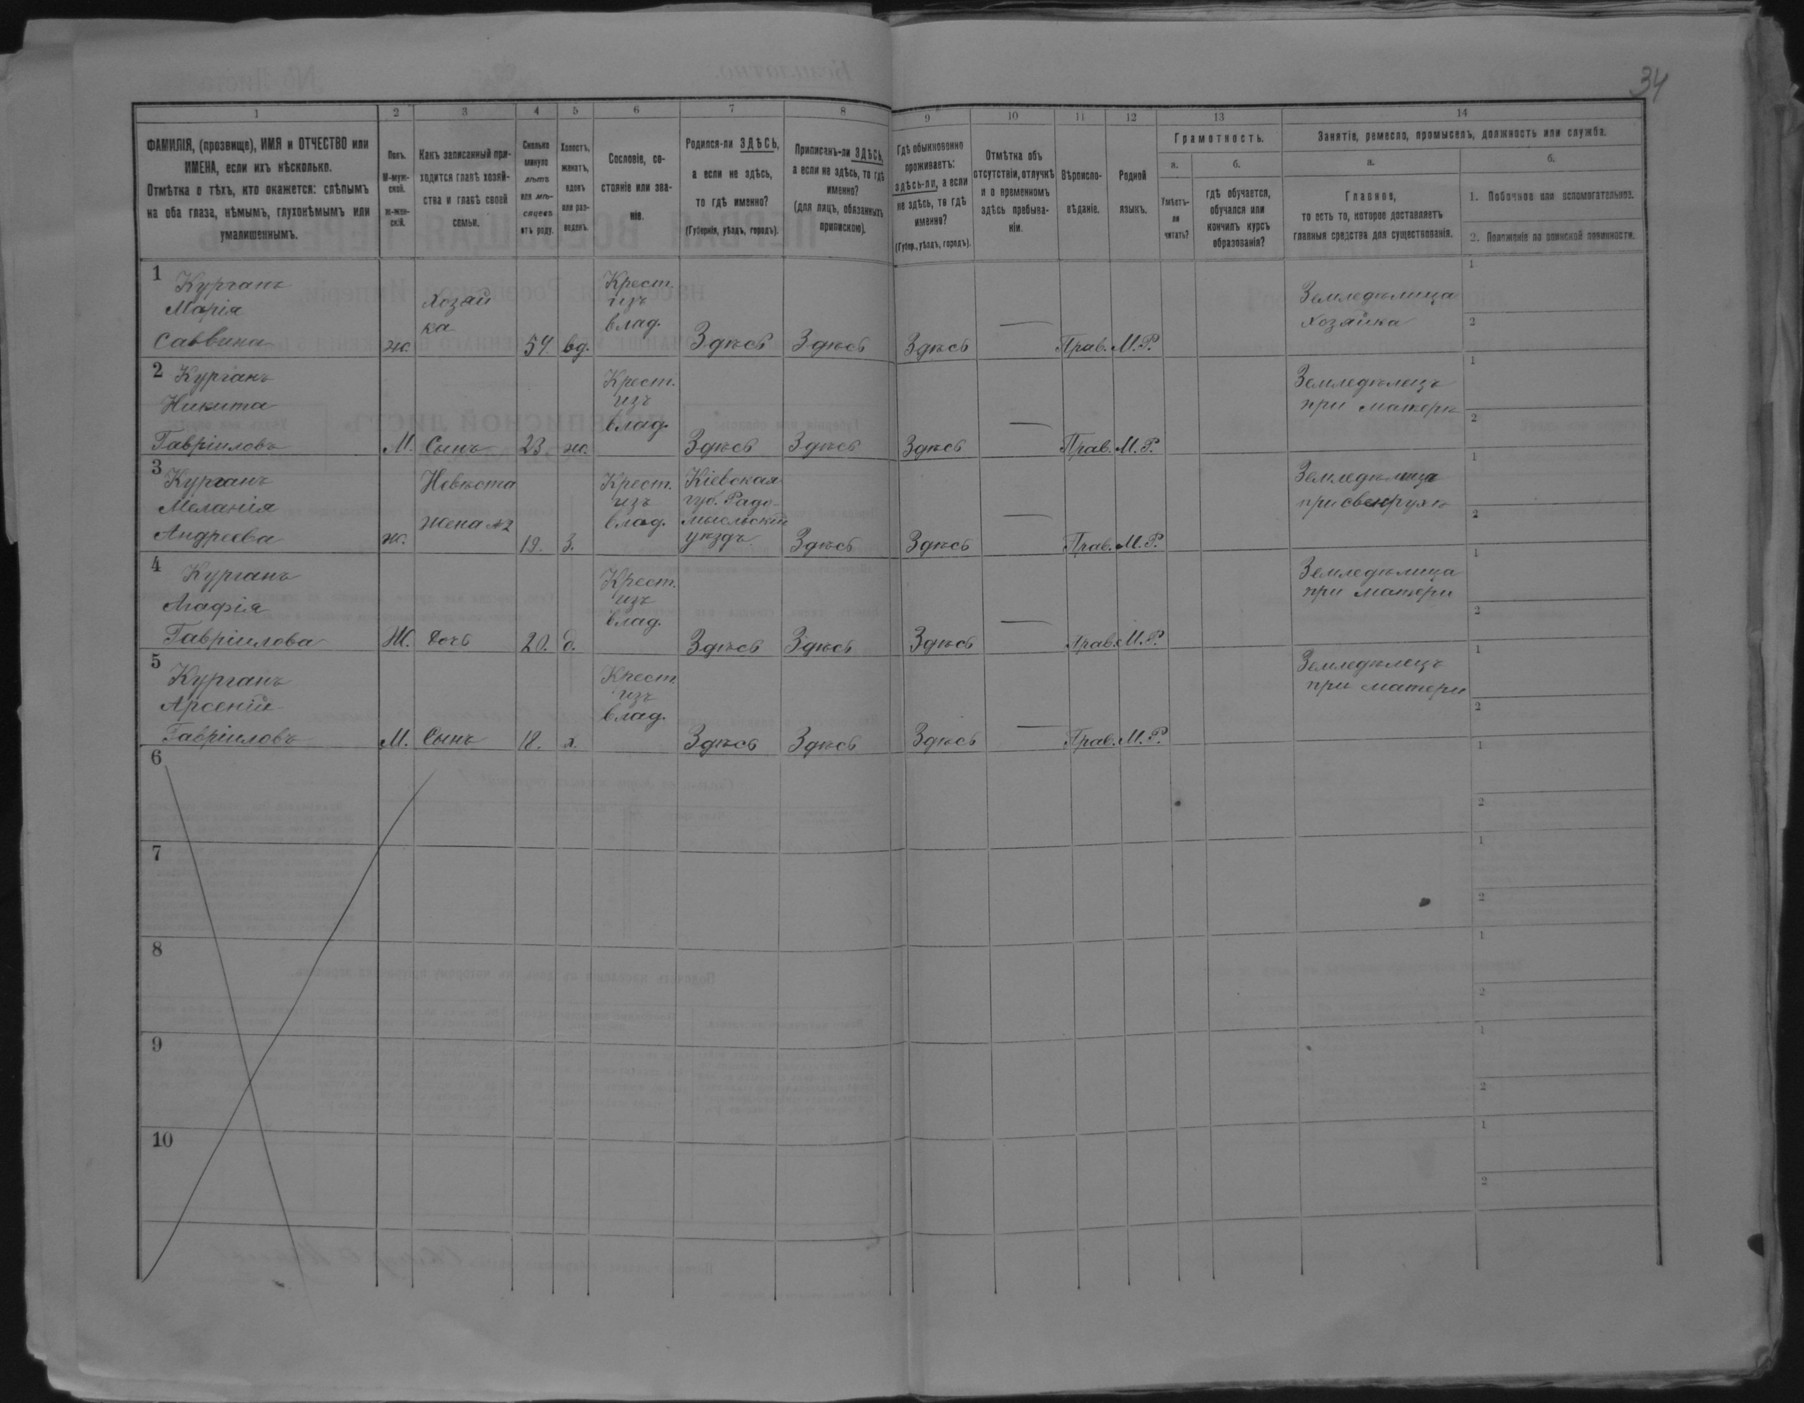 34
1
2
3
4
5
6
7
8
9
10
11
12
13
14
ФАМИЛІЯ, (прозвище), ИМЯ и ОТЧЕСТВО или
ИМЕНА, если ихъ нѣсколько.
Отмѣтка о тѣхъ, кто окажется: слѣпымъ
на оба глаза, нѣмымъ, глухонѣмымъ или
умалишеннымъ.
Полъ.
М-муж-
ской.
ж-жен-
скій.
Какъ записанный при-
ходится главѣ хозяй-
ства и главѣ своей
семьи.
Сколько
минуло
лѣтъ
или мѣ-
сяцевъ
отъ роду.
Холостъ,
женатъ,
вдовъ
или раз-
веденъ.
Сословіе, со-
стояніе или зва-
ніе.
Родился-ли ЗДѢСЬ,
а если не здѣсь,
то гдѣ именно?
(Губернія, уѣздъ, городъ).
Приписанъ-ли ЗДѢСЬ,
а если не здѣсь, то гдѣ
именно?
(для лицъ, обязанныхъ
припискою).
Гдѣ обыкновенно
проживаетъ:
здѣсь-ли, а если
не здѣсь, то гдѣ
именно?
(Губер., уѣздъ, городъ).
Отмѣтка объ
отсутствіи, отлучкѣ
и о временномъ
здѣсь пребыва-
ніи.
Вѣроиспо-
вѣданіе.
Родной
языкъ.
Грамотность.
а.
Умѣетъ-
ли
читать?
б.
гдѣ обучается,
обучался или
кончилъ курсъ
образованія?
Занятіе, ремесло, промыселъ, должность или служба.
а.
Главное,
то есть то, которое доставляетъ
главныя средства для существованія.
б.
1. Побочное или вспомогательное.
2. Положеніе по воинской повинности.
1 Курганъ
Марія
Саввина
ж.
Хозяй
ка
54
вд.
Крест.
изъ
влад.
Здѣсь
Здѣсь
Здѣсь
Прав.
М.Р.
Земледѣлица
хозяйка
1
2
2 Курганъ
Никита
Гавріиловъ
М.
Сынъ
23
ж.
Крест.
изъ
влад.
Здѣсь
Здѣсь
Здѣсь
Прав.
М.Р.
Земледѣлецъ
при матери
1
2
3 Курганъ
Меланія
Андреева
ж.
Невѣста
Жена №2
19.
з.
Крест.
изъ
влад.
Кіевская
губ. Радо-
мысльскій
уѣздъ.
Здѣсь
Здѣсь
Прав.
М.Р.
Земледѣлица
при свекрухѣ
1
2
4 Курганъ
Агафія
Гавріилова
Ж.
Дочь
20.
д.
Крест.
изъ
влад.
Здѣсь
Здѣсь
Здѣсь
Прав.
М.Р.
Земледѣлица
при матери
1
2
5 Курганъ
Арсеній
Гавріиловъ
М.
Сынъ
18.
х.
Крест
изъ
влад.
Здѣсь
Здѣсь
Здѣсь
Прав.
М.Р.
Земледѣлецъ
при матери
1
2
6
1
2
7
1
2
8
1
2
9
1
2
10
1
2